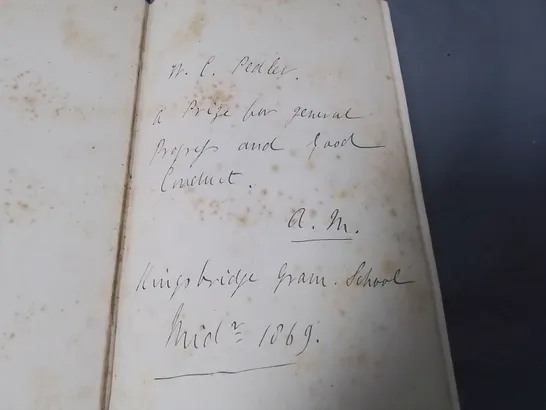 W. C. Pedler.
a Prize for general
Progress and good
Conduct.
A. M.
Kingsbridge Gram. School
Midr 1869.